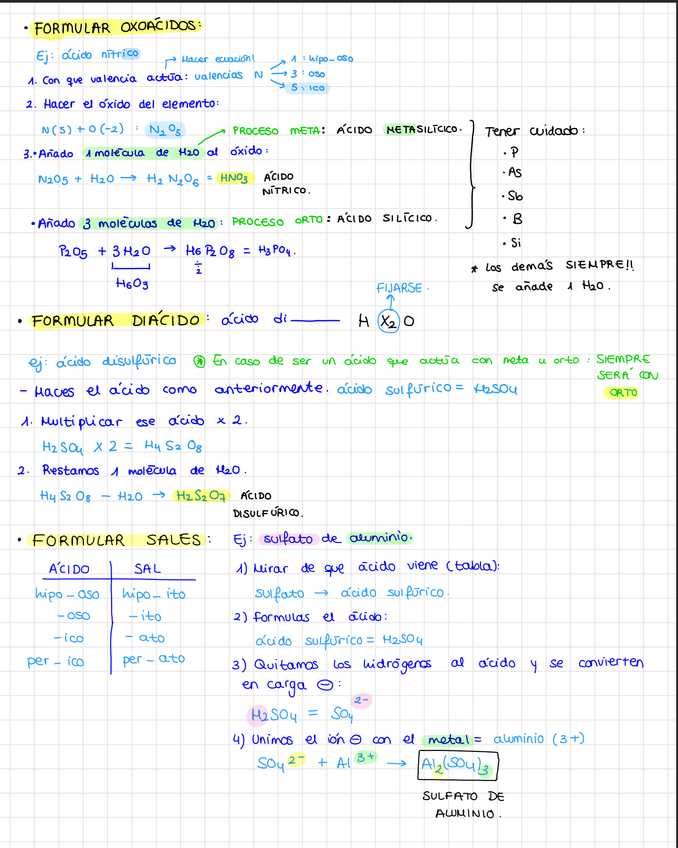 • FORMULAR OXOÁCIDOS:
Ej: ácido nítrico
→ Hacer ecuación!
1. Con que valencia actúa: valencias N
→ 1 : hipo-oso
→ 3 : oso
→ 5 : ico
2. Hacer el óxido del elemento:
N(5) + O(-2) : N2O5
→ PROCESO META: ÁCIDO METASILÍCICO.
3.• Añado 1 molécula de H2O al óxido:
N2O5 + H2O → H2 N2O6 = HNO3 ÁCIDO
NÍTRICO.
• Añado 3 moléculas de H2O: PROCESO ORTO: ÁCIDO SILÍCICO.
P2O5 + 3H2O → H6 P2 O8 = H3PO4.
÷
2
H6O3
Tener cuidado:
• P
• As
• Sb
• B
• Si
* Los demás SIEMPRE!!
se añade 1 H2O.
FIJARSE.
• FORMULAR DIÁCIDO: ácido di______ H X2 O
ej: ácido disulfúrico * En caso de ser un ácido que actúa con meta u orto : SIEMPRE
SERÁ CON
ORTO
- Haces el ácido como anteriormente. ácido sulfúrico = H2SO4
1. Multiplicar ese ácido x 2.
H2SO4 X 2 = H4 S2 O8
2. Restamos 1 molécula de H2O.
H4 S2 O8 - H2O → H2S2O7 ÁCIDO
DISULFÚRICO.
• FORMULAR SALES: Ej: sulfato de aluminio.
ÁCIDO | SAL
hipo-oso | hipo-ito
-oso | -ito
-ico | -ato
per-ico | per-ato
1) Mirar de que ácido viene (tabla):
Sulfato → ácido sulfúrico.
2) Formulas el ácido:
ácido sulfúrico = H2SO4
3) Quitamos los hidrógenos al ácido y se convierten
en carga ⊖:
H2SO4 = SO4 2-
4) Unimos el ión ⊖ con el metal = aluminio (3+)
SO4 2- + Al 3+ → Al2(SO4)3
SULFATO DE
ALUMINIO.